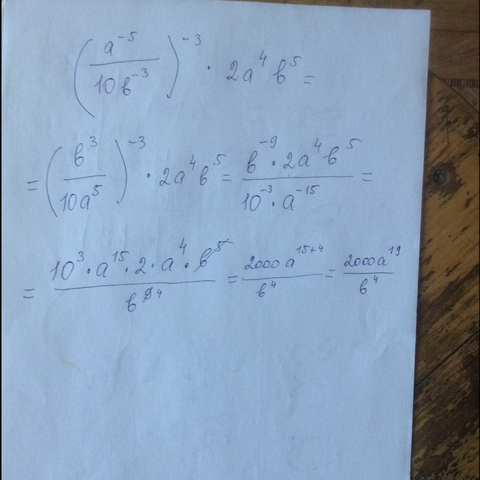 (a⁻⁵ / 10b⁻³)⁻³ · 2a⁴b⁵ =
= (b³ / 10a⁵)⁻³ · 2a⁴b⁵ = (b⁻⁹ · 2a⁴b⁵) / (10⁻³ · a⁻¹⁵) =
= (10³ · a¹⁵ · 2 · a⁴ · b⁵) / b⁹ ⁴ = 2000a¹⁵⁺⁴ / b⁴ = 2000a¹⁹ / b⁴